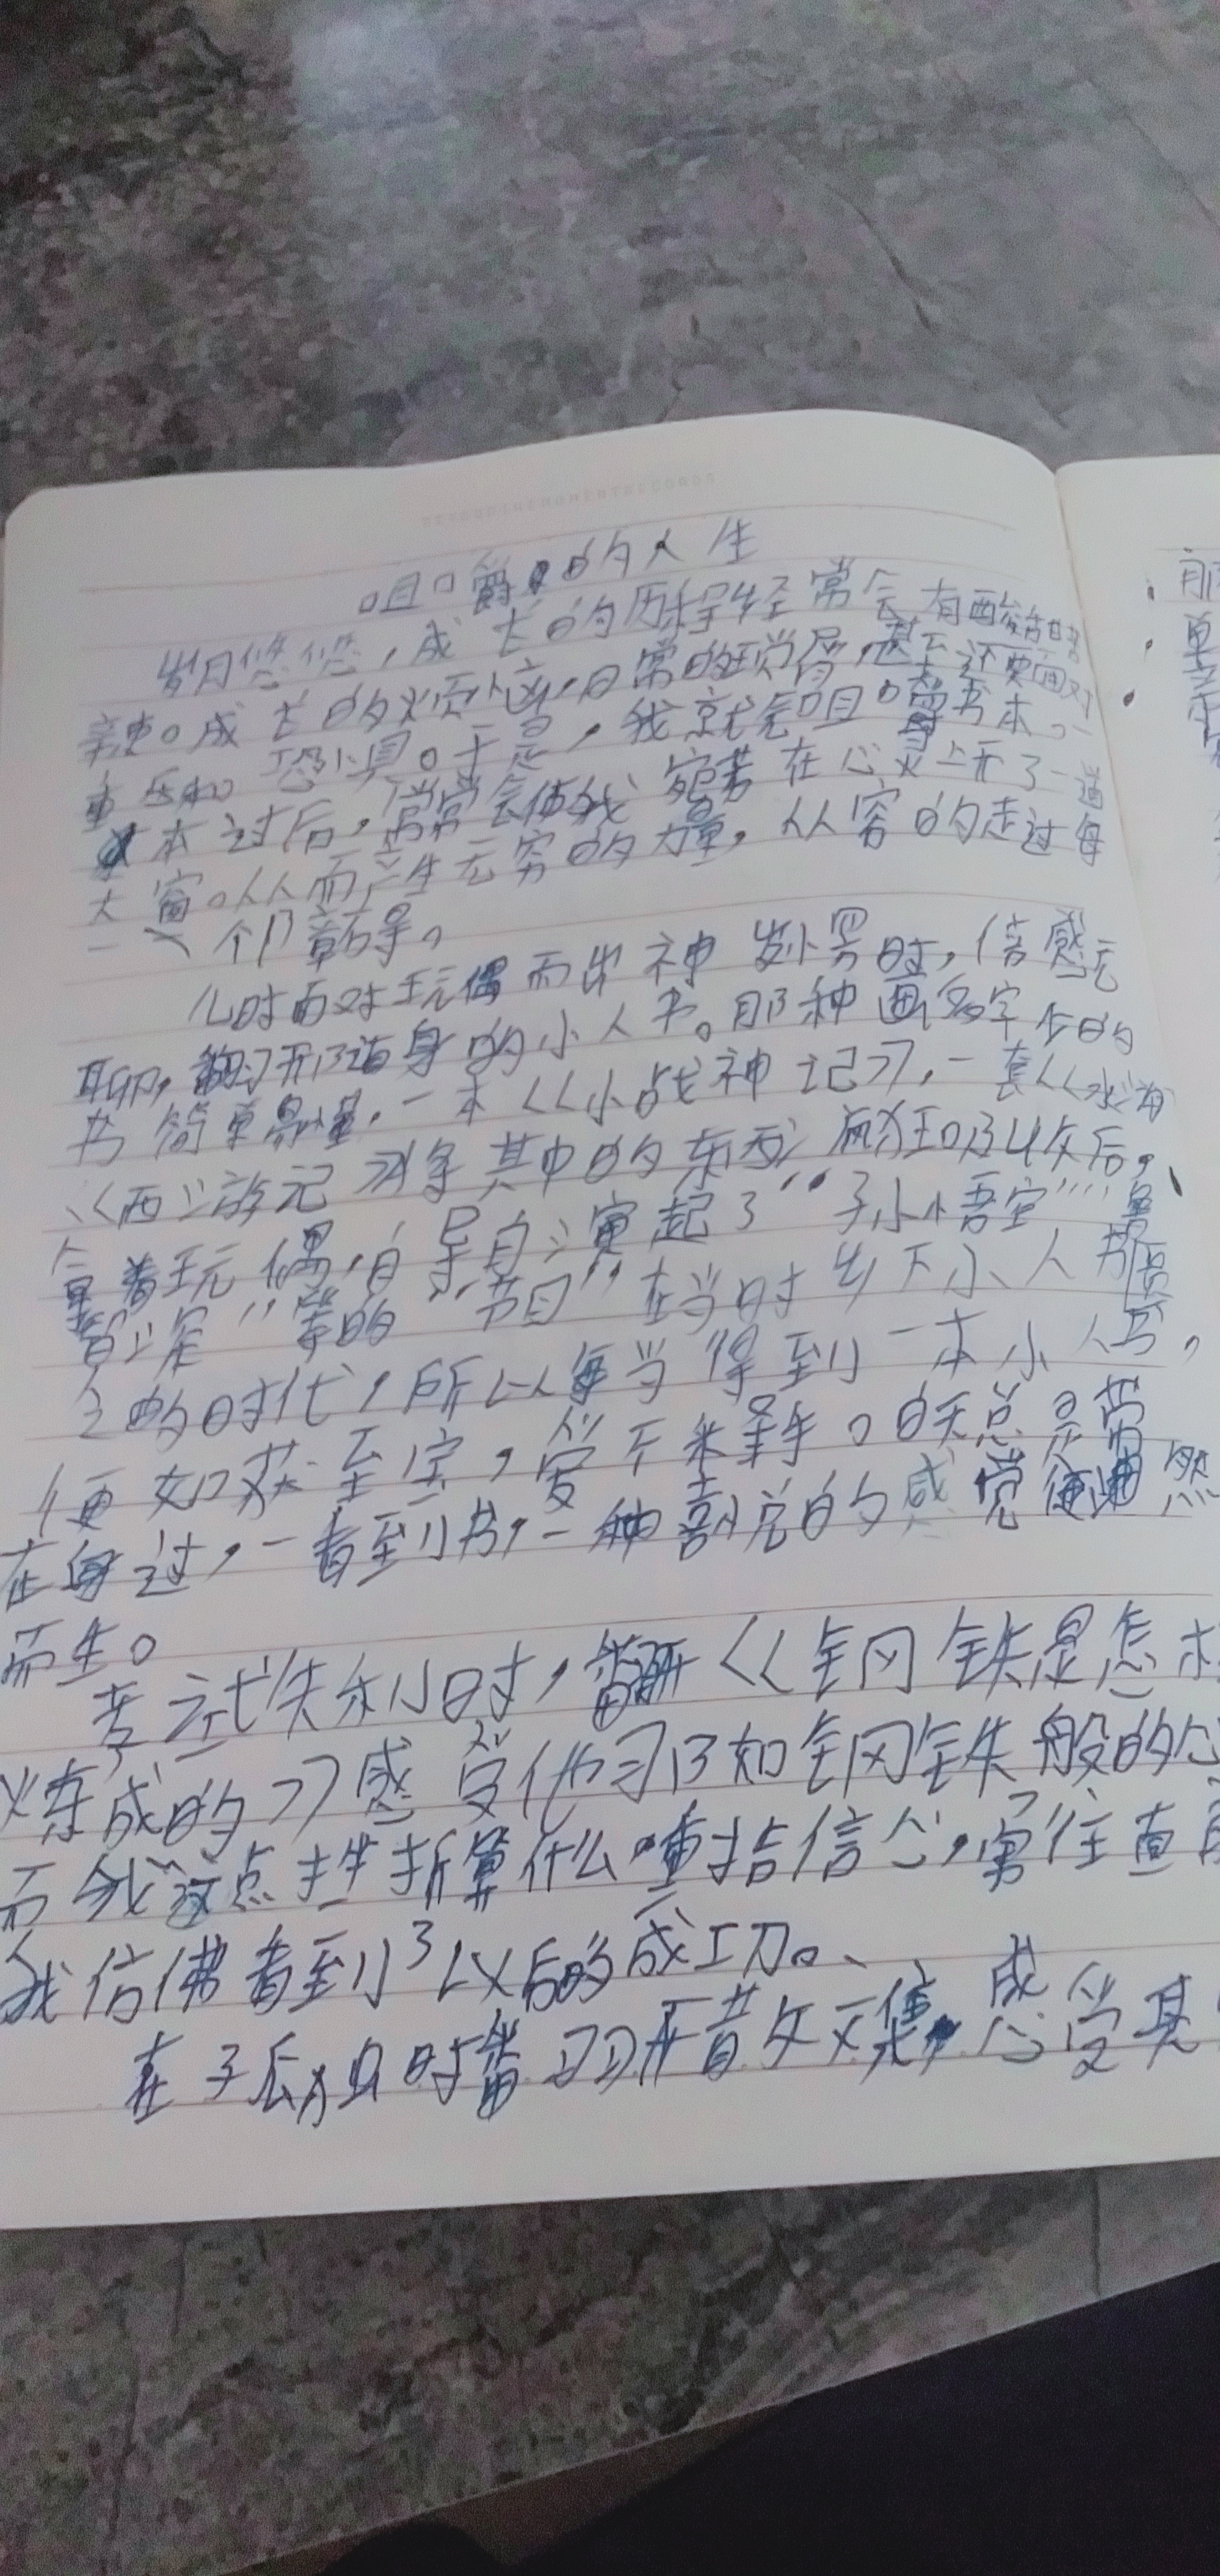 咀嚼的人生
岁月悠悠，成长的历程经常会有酸甜苦
辣。成长的烦恼，日常的琐屑，甚至还要面对
重压和恐惧。于是，我就会咀嚼书本。一
本过后，常常会使我宛若在心灵上开了一道
天窗。从而产生无穷的力量，从容的走过每
一个障碍。
儿时面对玩偶而出神发愣时，倍感无
聊，翻开那随身的小人书。那种画多字少的
书简单易懂，一本《小战神记》，一套《水浒
《西游记》将其中的东西疯狂吸收后，
拿着玩偶，自导自演起了“孙悟空”“鲁
智深”等的“节目”在当时少不小人书
的时代，所以每当得到一本小人书，
便如获至宝，爱不释手。的天总是
在过，一看到书，一种喜悦的感觉便油然
而生。
考试失利时，翻开《钢铁是怎样
炼成的》感受他那如钢铁般的心
而我这点挫折算什么，重拾信心，勇往直前
我仿佛看到了以后的成功。
在孤独时翻开散文集，感受其